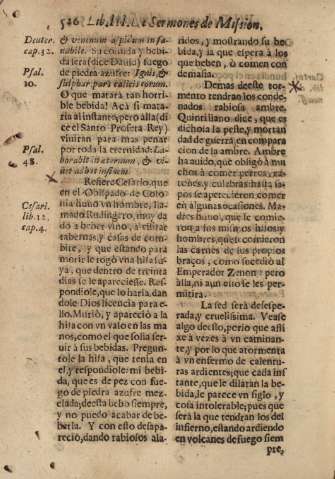 526 Lib. III. De Sermones de Missión.
Deuter.
cap. 32.
Psal.
10.
Psal.
48.
Cesari.
lib. 12.
cap. 4.
& venenum aspidum insa-
nabile. Su comida y bebi-
da será (dice David) fuego
de piedra azufre: Ignis, &
sulphur pars calicis eorum.
O que matará tan horri-
ble bebida! Acá si mata-
ria al instante; pero allá (di-
ce el Santo Profeta Rey)
vivirán para mas penar
por toda la eternidad: La-
borabit in æternum, & vi-
vet adhuc in finem.
Refiere Cesario, que
en el Obispado de Colo-
nia huvo vn hombre, lla-
mado Rudingero, muy da-
do a beber vino, á visitar
tabernas, y casas de com-
bite, y que estando para
morir le rogò vna hija su-
ya, que dentro de treinta
dias se le apareciesse. Res-
pondiole, que lo haria, dan-
dole Dios licencia para e-
llo. Muriò, y apareciò a la
hija con vn vaso en las ma-
nos, como el que solia ser-
vir à sus bebidas. Pregun-
tole la hija, que tenia en
el, y respondiole: mi bebi-
da, que es de pez con fue-
go de piedra azufre mez-
clada; desta bebo siempre,
y no puedo acabar de be-
berla. Y con esto desapa-
reciò, dando rabiosos ala-
ridos, y mostrando su be-
bida, y la que espera à los
que beben, ò comen con
demasia.
Demas deeste tor-
mento tendran los conde-
nados rabiosa ambre.
Quintiliano dice, que es
dichosa la peste, y mortan
dad de guerra en compara
cion de la ambre. Ambre
ha auido, que obligò à mu
chos à comer perros, ra-
tones, y culebras: hasta sa-
pos se apetecieron comer
en algunas ocasiones. Ma-
dres huuo, que le comie-
ron a sus mismos hijos: y
hombres, que se comieron
las carnes de sus propios
braços, como sucediò al
Emperador Zenon: pero
allà, ni aun esto se les per-
mitira.
La sed serà desespe-
rada, y cruelissima. Vease
algo desto, perio que assi
axe à vezes à vn caminan-
te, y por lo que atormenta
à vn enfermo de calentu-
ras ardientes; que cada ins
tante, que le dilatan la be-
bida, le parece vn siglo, y
cosa intolerable; pues que
serà la que tendran los del
infierno, estando ardiendo
en volcanes de fuego siem
pre,